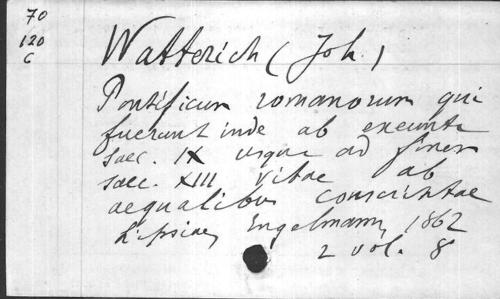 70
120
C
Watterich (Joh.)
Pontificum romanorum qui
fuerunt inde ab exeunte
saec. IX usque ad finem
saec. XIII vitae ab
aequalibus conscriptae
Lipsiae, Engelmann, 1862
2 vol. 8